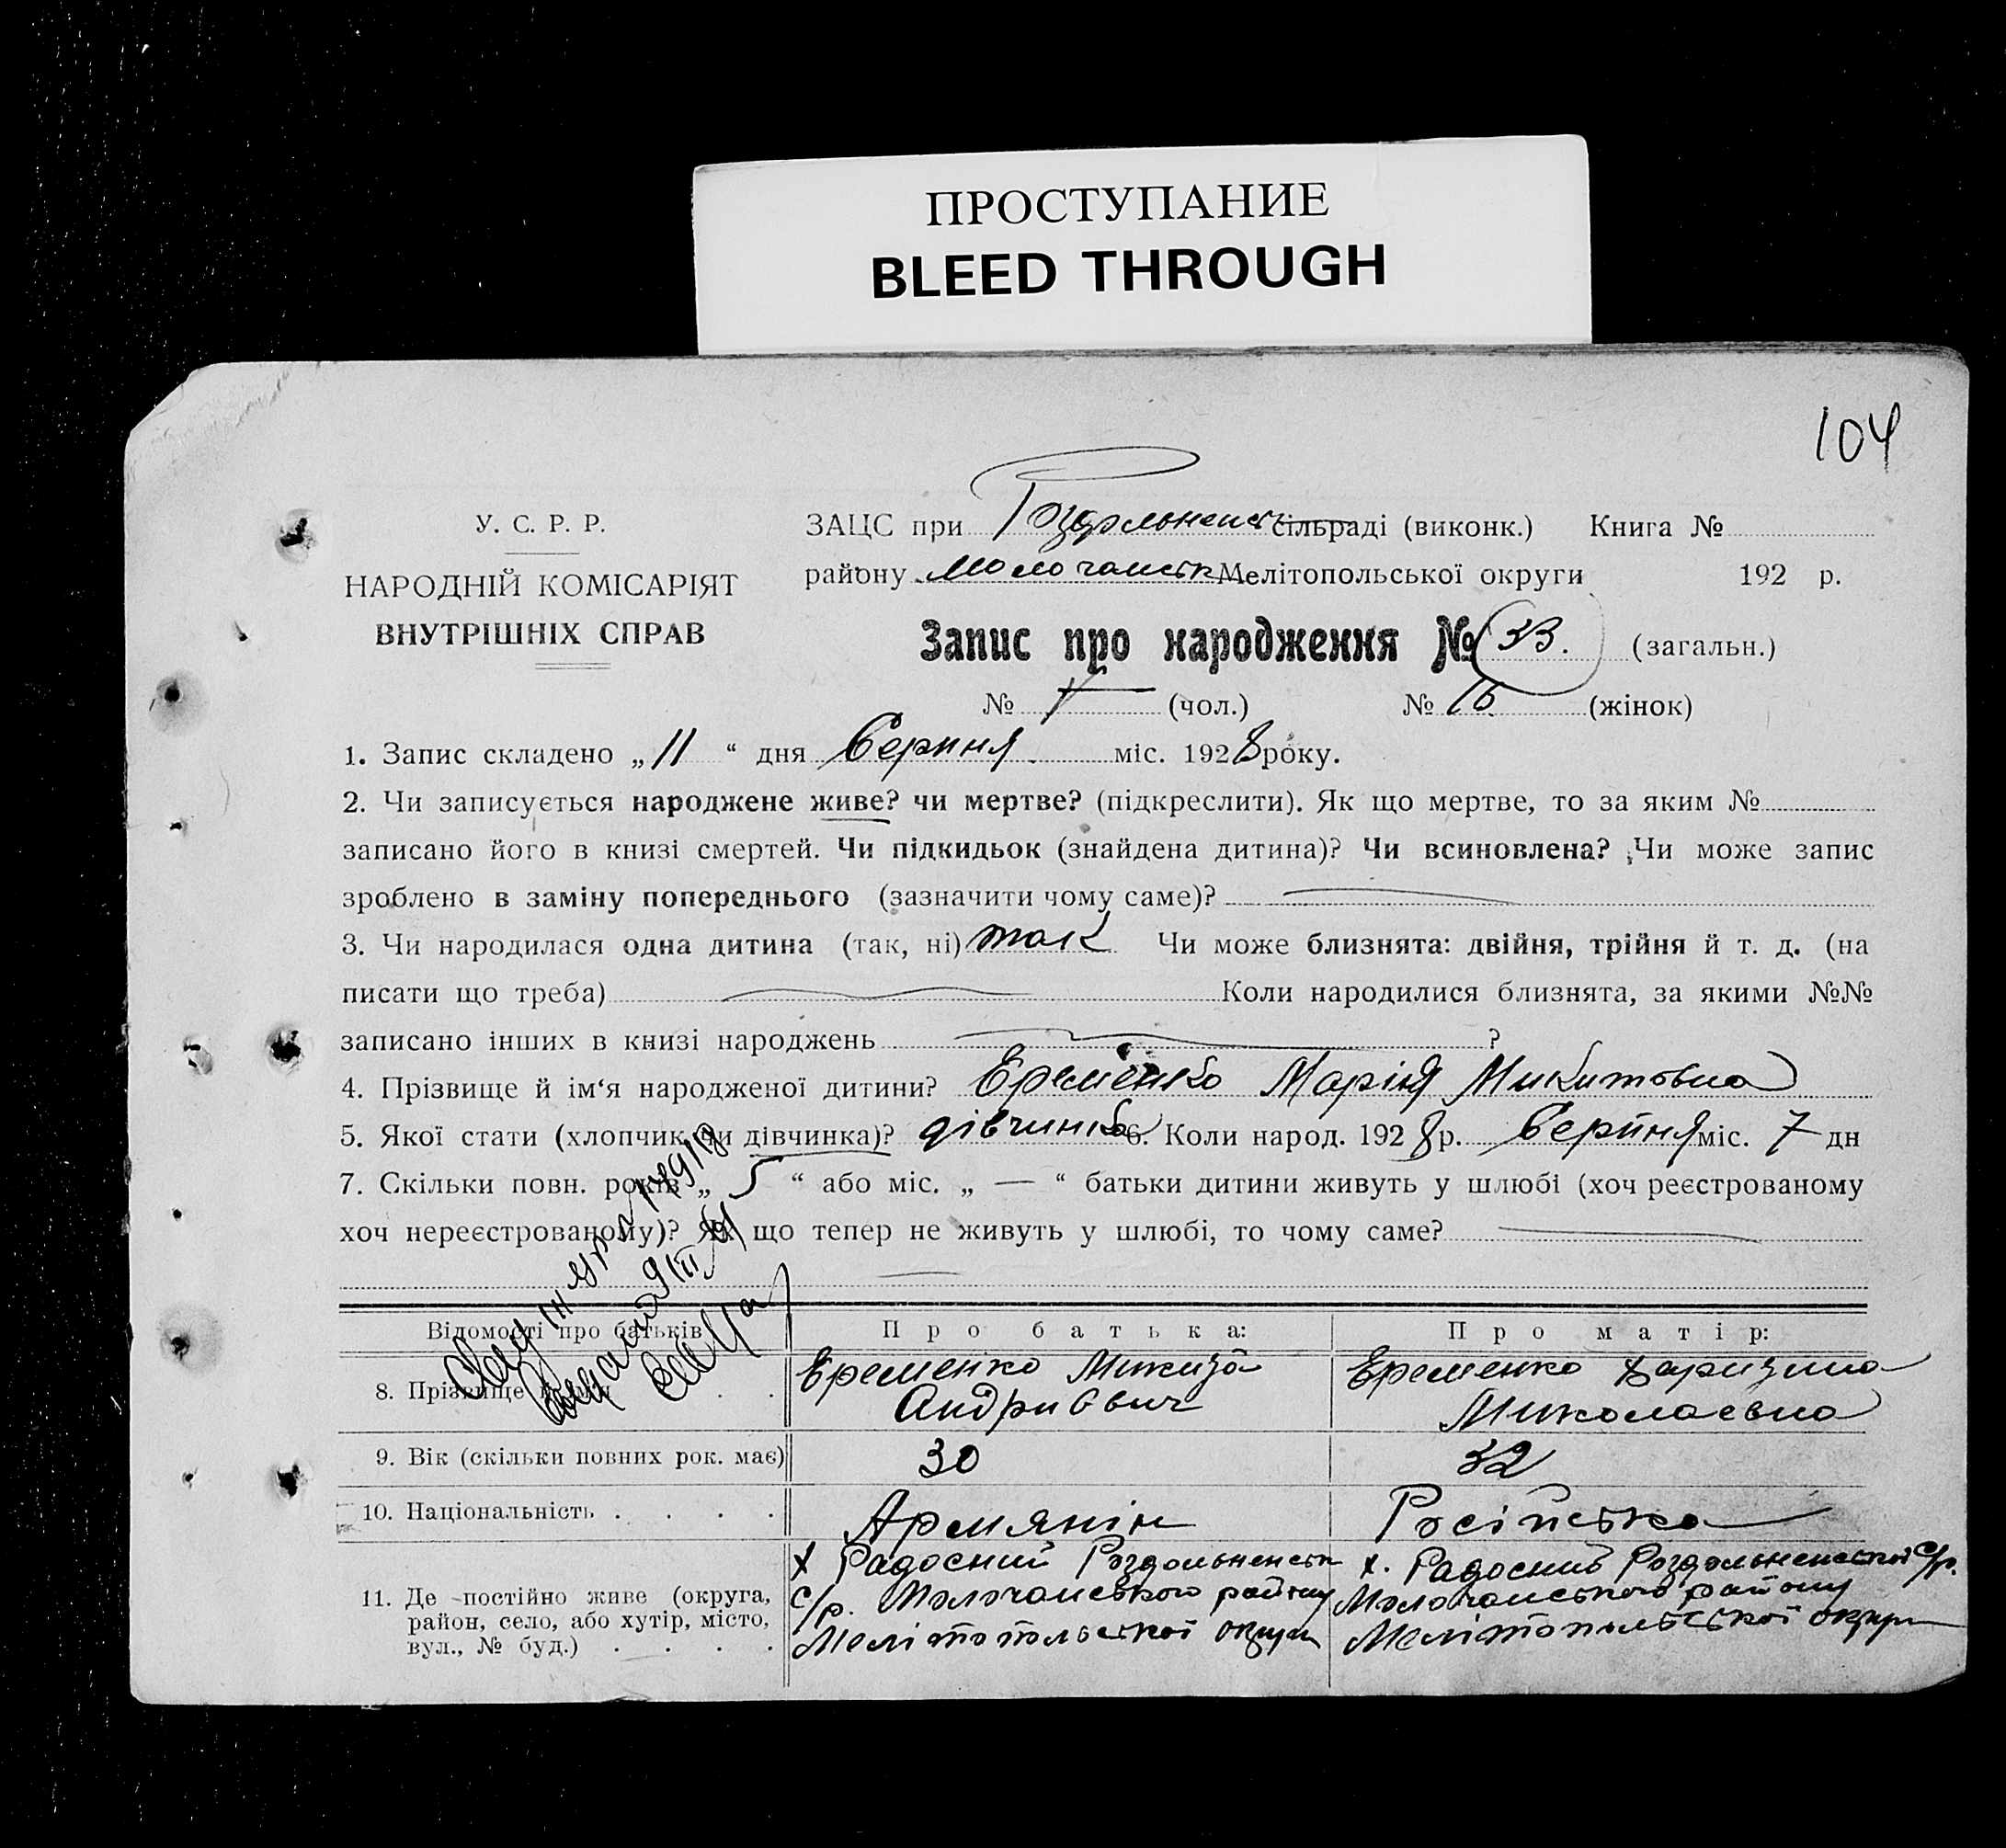 ПРОСТУПАНИЕ
BLEED THROUGH
104
У. С. Р. Р.
НАРОДНІЙ КОМІСАРІЯТ
ВНУТРІШНІХ СПРАВ
ЗАЦС при Роздольненськ сільраді (виконк.) Книга №
району Молочанськ Мелітопольської округи 192 р.
Запис про народження № 33. (загальн.)
№ (чол.) № 16 (жінок)
1. Запис складено „11“ дня Серпня міс. 1928 року.
2. Чи записується народжене живе? чи мертве? (підкреслити). Як що мертве, то за яким №
записано його в книзі смертей. Чи підкидьок (знайдена дитина)? Чи всиновлена? Чи може запис
зроблено в заміну попереднього (зазначити чому саме)?
3. Чи народилася одна дитина (так, ні) так Чи може близнята: двійня, трійня й т. д. (на
писати що треба) Коли народилися близнята, за якими №№
записано інших в книзі народжень ?
4. Прізвище й ім‘я народженої дитини? Еременко Марія Микитовна
5. Якої стати (хлопчик чи дівчинка)? дівчинка 6. Коли народ. 1928 р. Серпня міс. 7 дн
7. Скільки повн. років „5“ або міс. „—“ батьки дитини живуть у шлюбі (хоч реєстрованому
хоч нереєстрованому)? Як що тепер не живуть у шлюбі, то чому саме?
Відомості про батьків
Про батька:
Про матір:
8. Прізвище
Еременко Микита
Андриевич
Еременко
Миколаевна
9. Вік (скільки повних рок. має)
30
32
10. Національність . . . .
Армянін
Російська
11. Де постійно живе (округа,
район, село, або хутір, місто,
вул., № буд.) . . . .
х Радосний Роздольненськ
с/р. Молочанського району
Мелітопольської округи
х. Радосний Роздольненської с/р.
Молочанського району
Мелітопольської округи